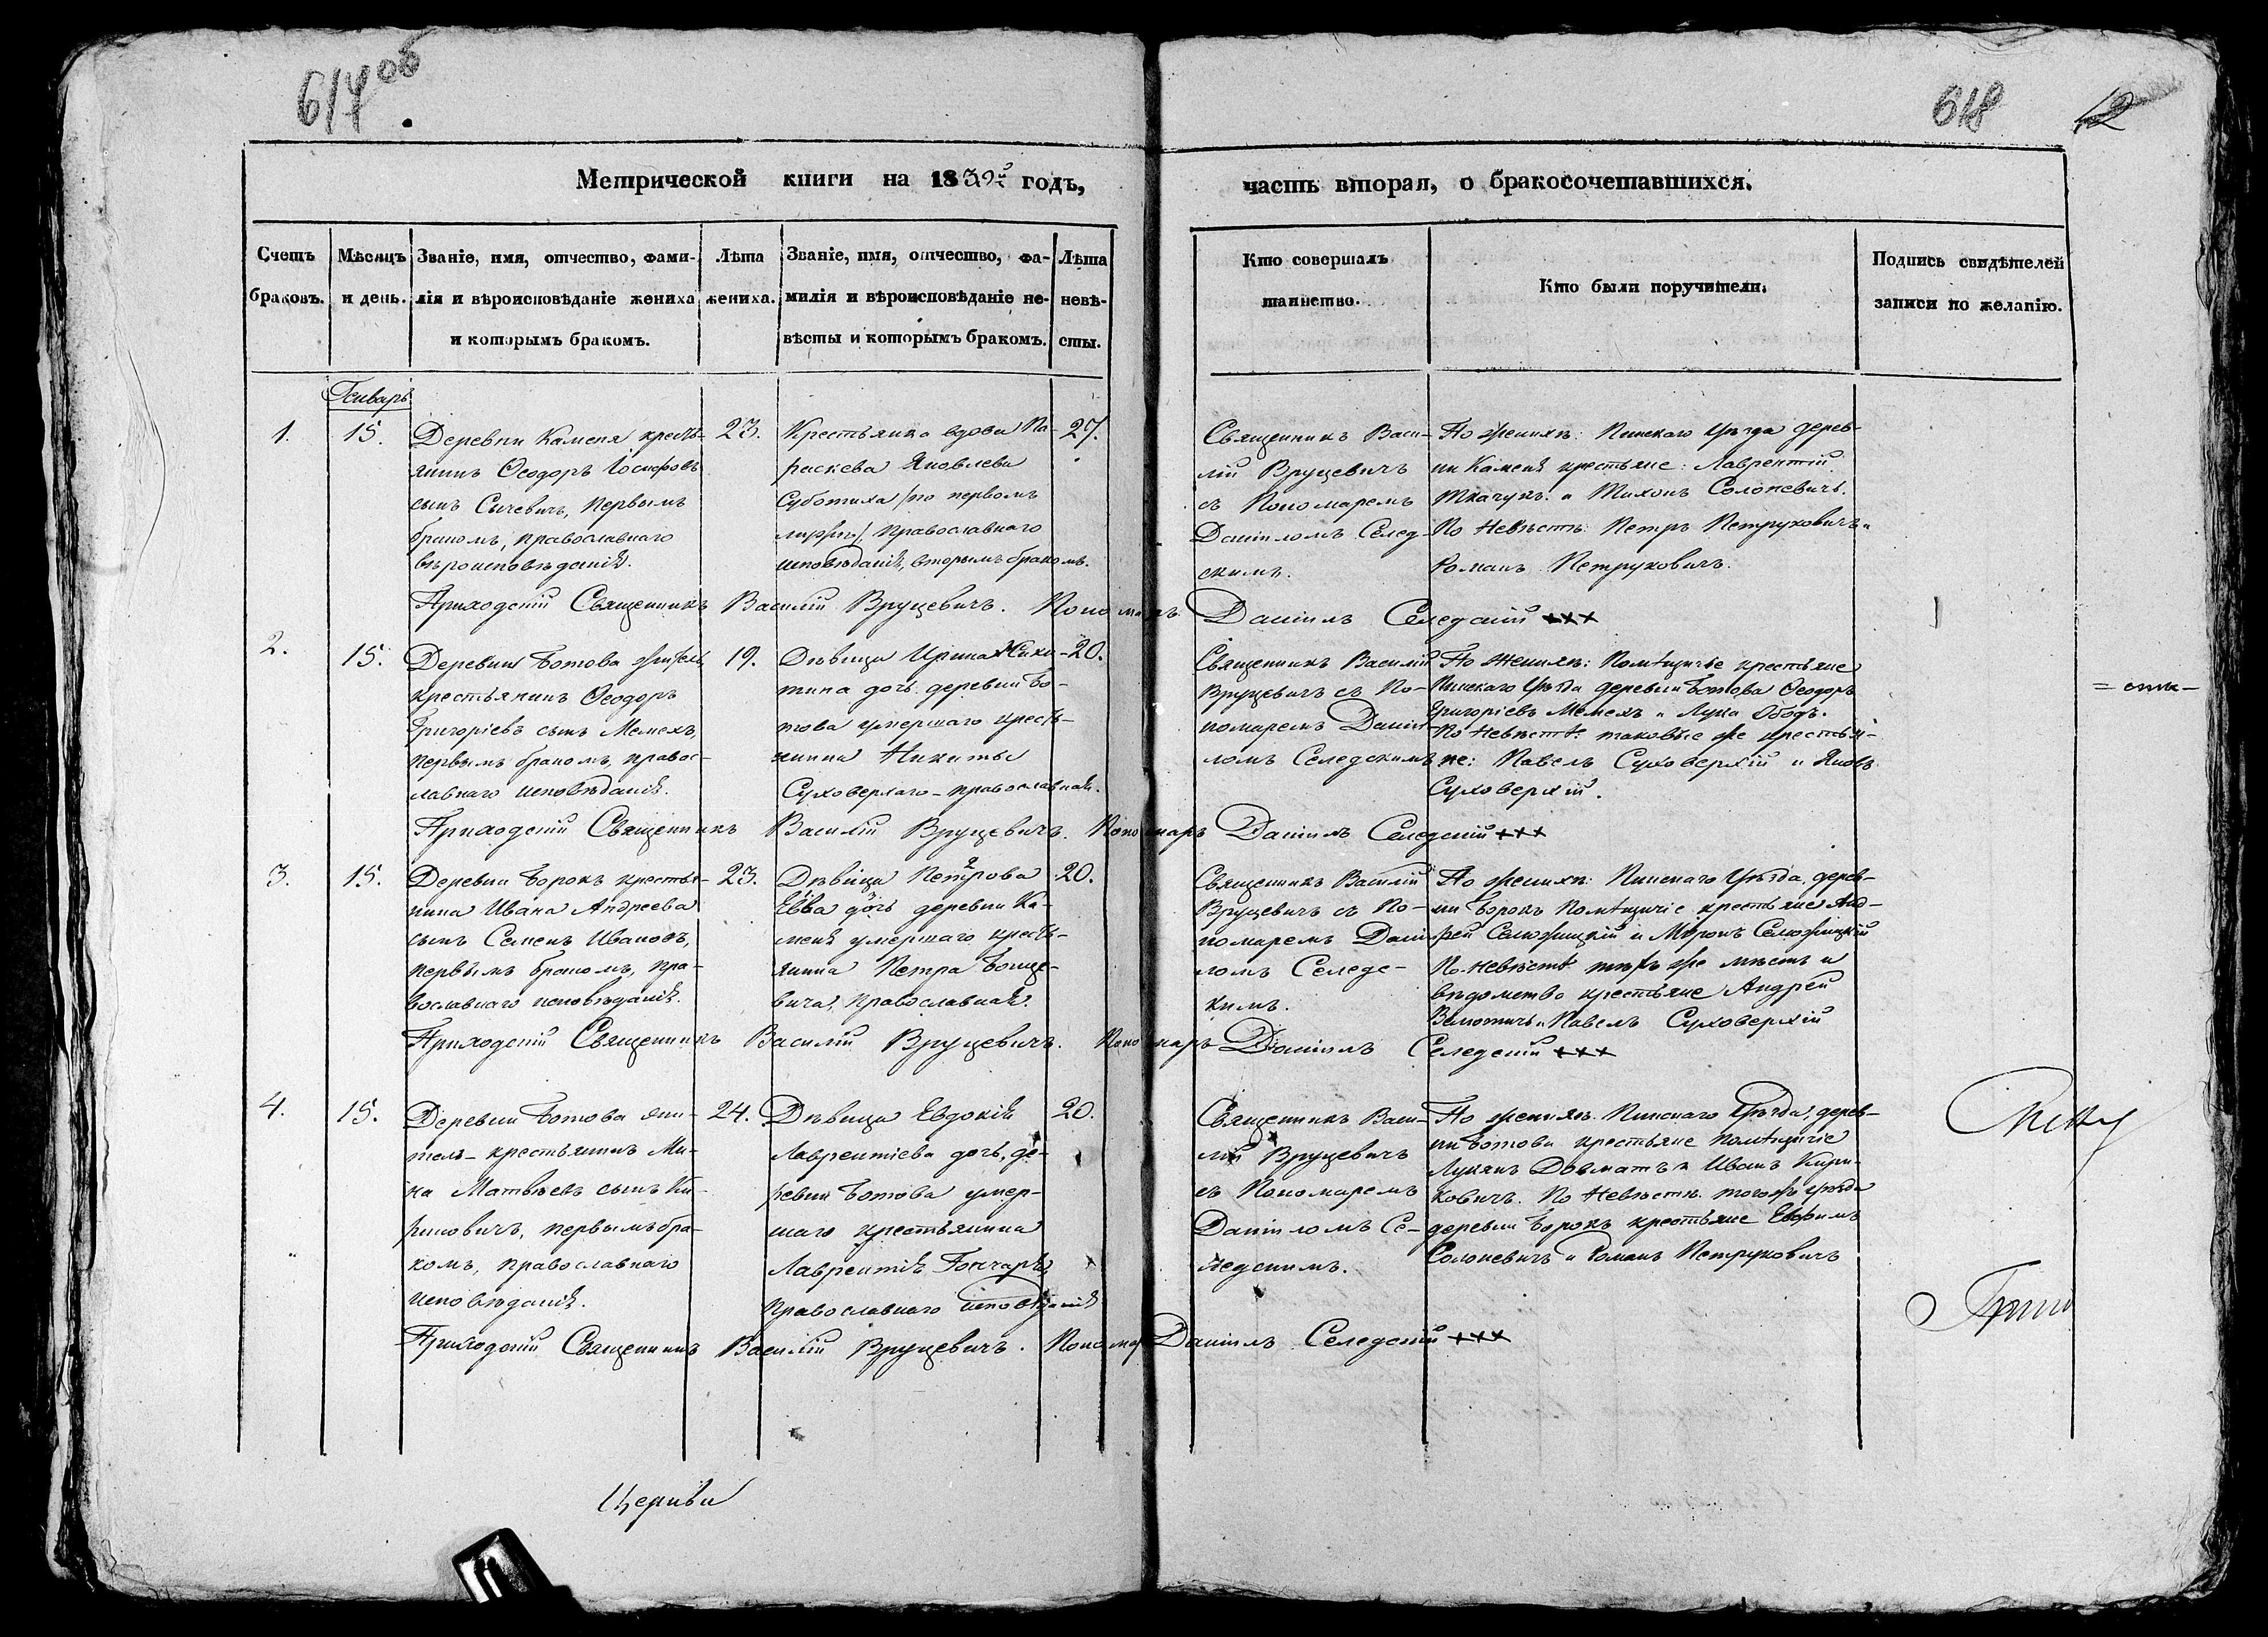 617 об
618 12
Метрической книги на 1839й годъ,
часть вторая, о бракосочетавшихся.
Счетъ браковъ.
Мѣсяцъ и день.
Званіе, имя, отчество, фами-
лія и вѣроисповѣданіе жениха
и которымъ бракомъ.
Лѣта
жениха.
Званіе, имя, отчество, фа-
милія и вѣроисповѣданіе не-
вѣсты и которымъ бракомъ.
Лѣта
невѣ-
сты.
Кто совершалъ
таинство.
Кто были поручители.
Подпись свидѣтелей
записи по желанію.
Генварь
1. 15.
Деревни Каменя кресть-
янинъ Ѳеодоръ Іосифовъ
сынъ Сычевичъ, первымъ
бракомъ, православнаго
вѣроисповѣданія.
23.
Крестьянка вдова Па-
раскева Яковлева
Суботиха /по первомъ
мужѣ/, православнаго
исповѣданія, вторымъ бракомъ.
27.
Священникъ Васи-
лій Вруцевичъ
съ Пономаремъ
Даніиломъ Селед-
скимъ.
По женихѣ: Пинскаго Уѣзда дерев-
ни Каменя крестьяне: Лаврентій
Ткачукъ и Тихонъ Солоневичъ.
По Невѣстѣ: Петръ Петруковичъ и
Романъ Петруковичъ.
Приходскій Священникъ Василій Вруцевичъ. Пономарь Даніилъ Селедскій +++
2. 15.
Деревни Ботова житель
крестьянинъ Ѳеодоръ
Григоріевъ сынъ Мелехъ
первымъ бракомъ, правос-
лавнаго исповѣданія.
19.
Дѣвица Ирина Ники-
тина дочь деревни Бо-
това умершаго кресть-
янина Никиты
Суховерхаго - православная.
20.
Священникъ Василій
Вруцевичъ съ По-
номаремъ Даніи-
ломъ Селедскимъ
По женихѣ: Помѣщичье крестьяне
Пинскаго Уѣзда деревни Ботова Ѳеодоръ
Григоріевъ Мелехъ и Лука Ободъ.
По Невѣстѣ: таковые же крестья-
не: Павелъ Суховерхій и Яковъ
Суховерхій.
Приходскій Священникъ Василій Вруцевичъ. Пономарь Даніилъ Селедскій +++
3. 15.
Деревни Борокъ крестья-
нина Ивана Андреева
сынъ Семенъ Ивановъ,
первымъ бракомъ, пра-
вославнаго исповѣданія.
23.
Дѣвица Петрова 2
Евва дочь деревни Ка-
меня умершаго кресть-
янина Петра Боще-
вича, православная.
20.
Священникъ Василій
Вруцевичъ съ По-
номаремъ Даніи-
ломъ Селедс-
кимъ.
По женихѣ: Пинскаго Уѣзда, дерев-
ни Борокъ Помѣщичіе крестьяне Анд-
рей Селюжицкій и Миронъ Селюжицкій
По Невѣстѣ тѣхъ же мѣстъ и
вѣдомства крестьяне Андрей
и Павелъ Суховерхій
Приходскій Священникъ Василій Вруцевичъ. Пономарь Даніилъ Селедскій +++
4. 15.
Деревни Ботова жи-
тель - крестьянинъ Ми-
на Матвѣевъ сынъ Ки-
риковичъ, первымъ бра-
комъ, православнаго
исповѣданія.
24.
Дѣвица Евдокія
Лаврентіева дочь, де-
ревни Ботова умер-
шаго крестьянина
Лаврентія Гончара,
православнаго исповѣданія
20.
Священникъ Васи-
лій Вруцевичъ
съ Пономаремъ
Даніиломъ Се-
ледскимъ.
По женихѣ. Пинскаго Уѣзда, дерев-
ни Ботова крестьяне помѣщичіе
Лукянъ Довматъ и Иванъ Кири-
ковичъ. По Невѣстѣ. тогожъ уѣзда
деревни Борокъ крестьяне Евфимъ
Солоневичъ и Романъ Петруковичъ
Приходскій Священникъ Василій Вруцевичъ. Пономарь Даніилъ Селедскій +++
Церкви